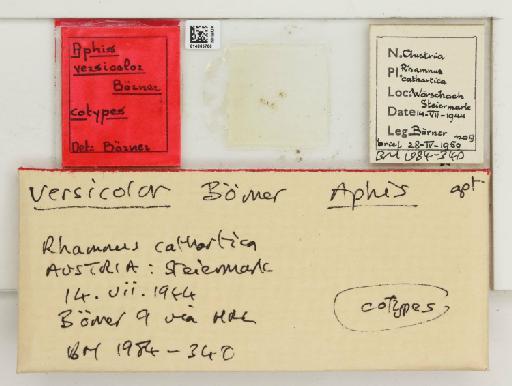 Aphis
versicolor
Börner
cotypes
Det: Börner
N. Austria
Pl Rhamnus
cathartica
Loc: Wörschach
Steiermark
Date 14-VII-1944
Leg Börner
28-IV-1960
BM 1984-340
versicolor Börner Aphis apt.
Rhamnus cathartica
AUSTRIA: Steiermark
14.vii.1944
Börner 9 via HRL
BM 1984-340
cotypes